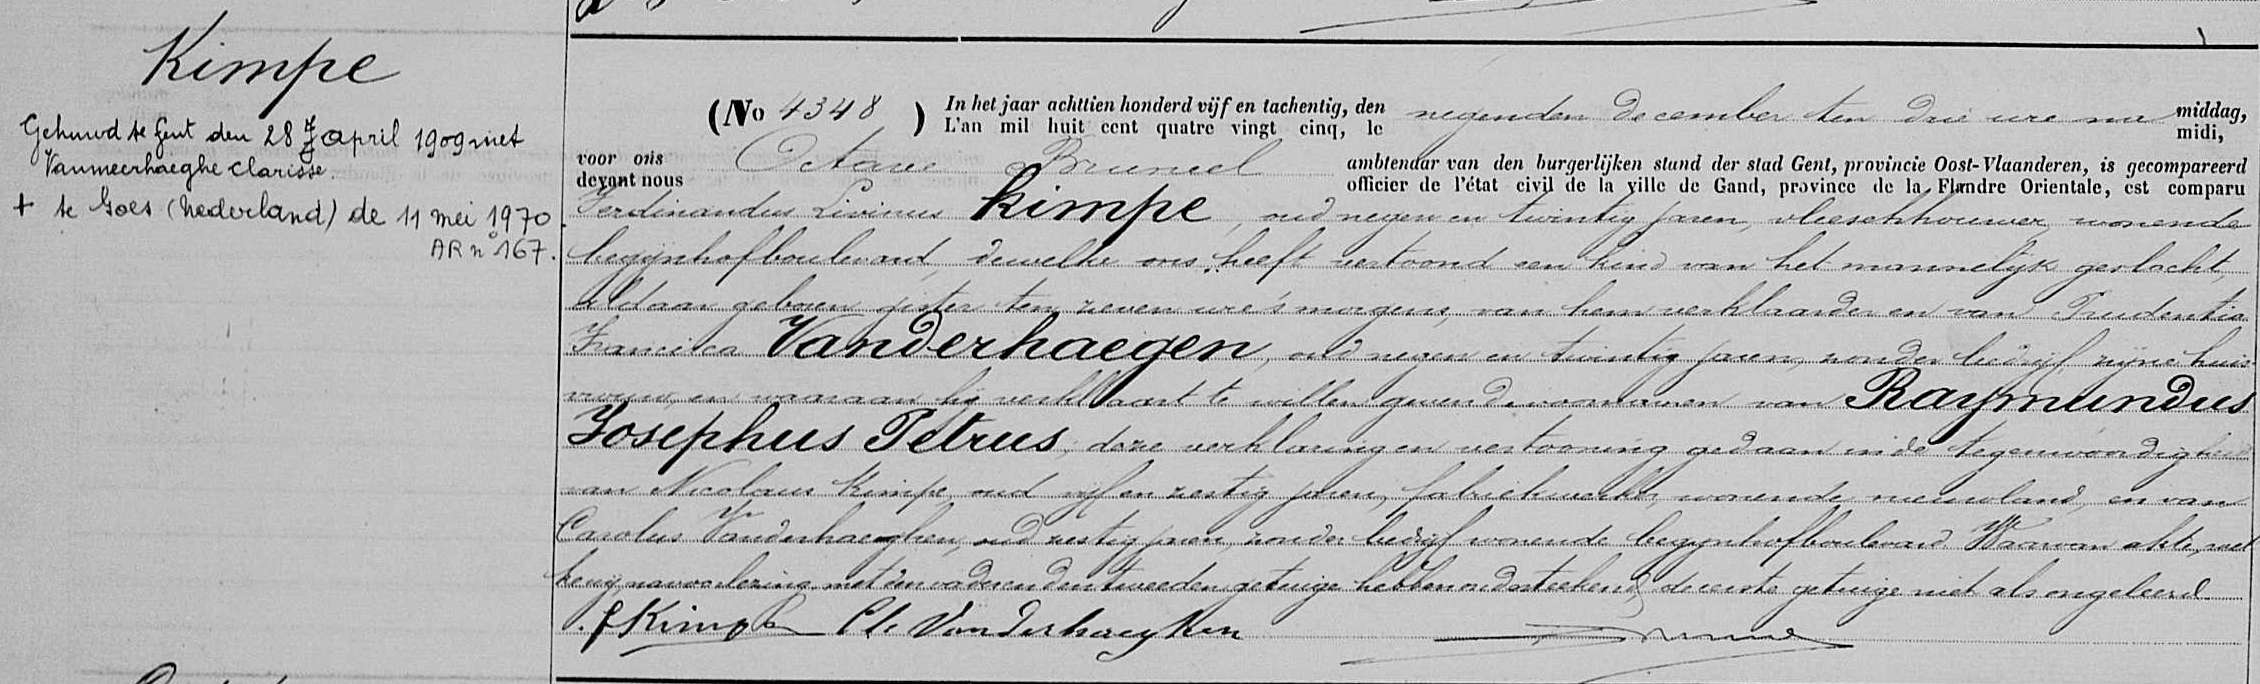 Kimpe
Gehuwd te Gent den 28 april 1909 met
Vanmeerhaeghe Clarisse.
+ te Goes (Nederland) de 11 mei 1970
AR n° 167.
(No 4348) In het jaar achttien honderd vijf en tachentig, den negenden december ten drie ure na middag,
L'an mil huit cent quatre vingt cinq, le midi,
voor ons Octave Bruneel ambtenaar van den burgerlijken stand der stad Gent, provincie Oost-Vlaanderen, is gecompareerd
devant nous officier de l'état civil de la ville de Gand, province de la Flandre Orientale, est comparu
Ferdinandus Livinus Kimpe, oud negen en twintig jaren, vleeschhouwer, wonende
begijnhofboulevard, dewelke ons heeft vertoond een kind van het mannelijk geslacht,
aldaar geboren gister ten zeven ure 's morgens, van hem verklaarder en van Prudentia
Francisca Vanderhaegen, oud negen en twintig jaren, zonder bedrijf, zijne huis-
vrouw, en waaraan hij verklaart te willen geven de voornamen van Raymundus
Josephus Petrus; deze verklaring en vertooning gedaan in de tegenwoordigheid
van Nicolaus Kimpe, oud vijf en zestig jaren, fabriekwerker, wonende nieuwland, en van
Carolus Vanderhaeghen, oud zestig jaren, zonder bedrijf wonende begijnhofboulevard. Waarvan akte, met
henig navoorlezing met den vader en den tweeden getuige hebben onderteekend, de eerste getuige niet als ongeleerd.
f Kimpe Ch. Vanderhaeghen